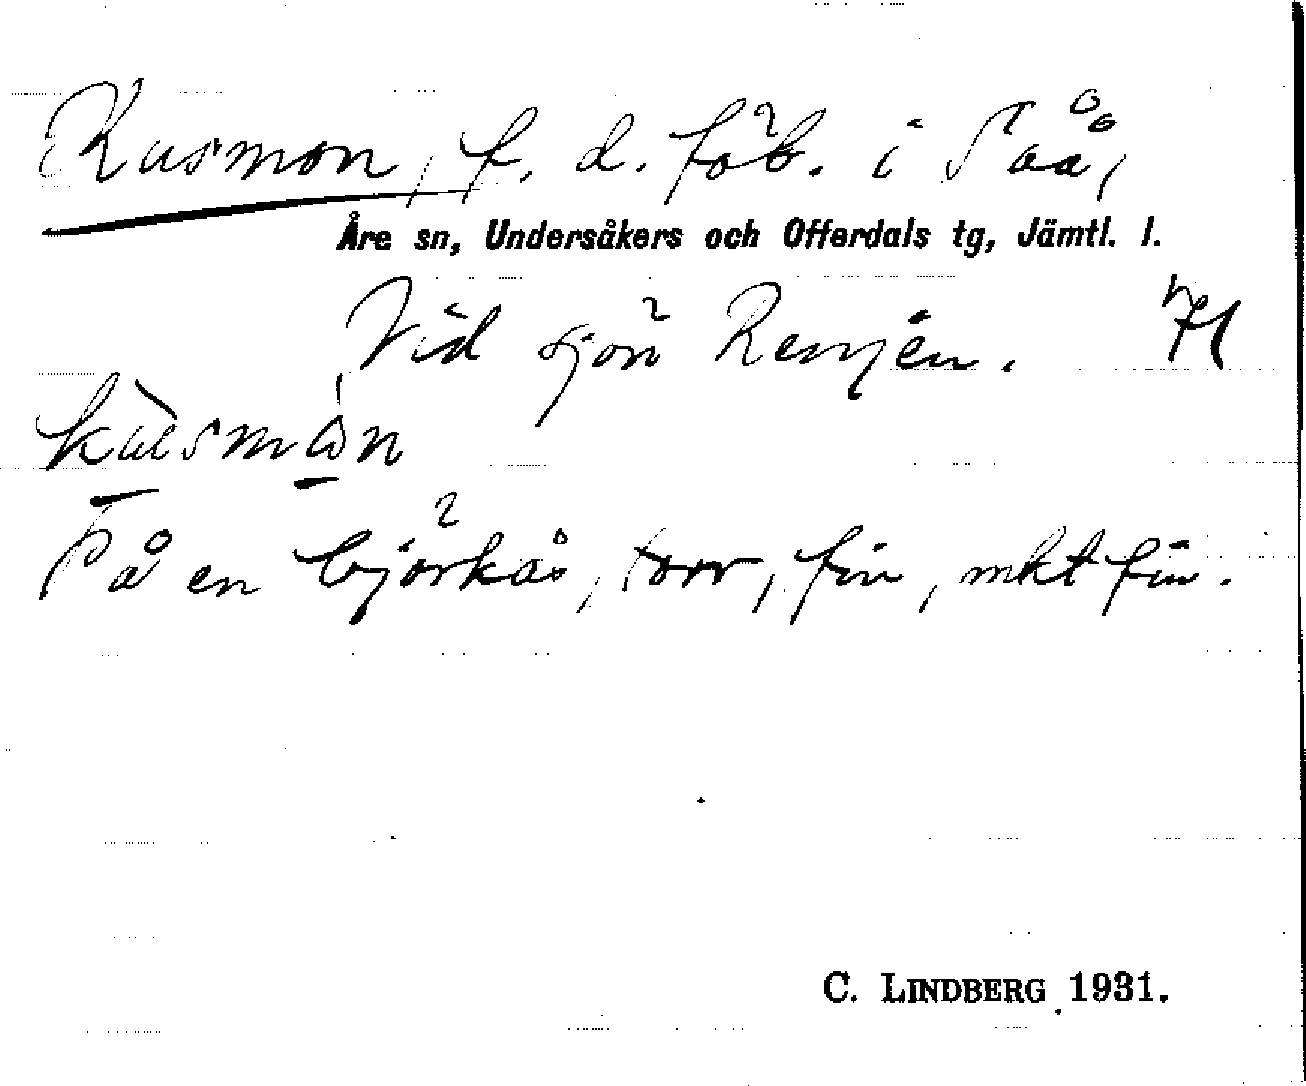 Kusmon, f. d. fäb. i Såå,
Åre sn, Undersåkers och Offerdals tg, Jämtl. l.
Vid sjön Rensjön.
På en björkås, torr, fin, mkt fin.
C. LINDBERG 1931.